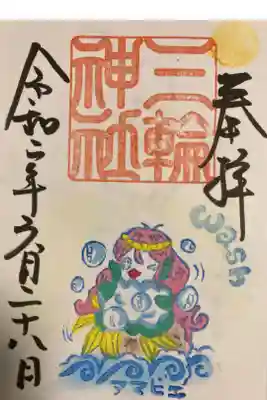 奉拝
三輪
神社
令和二年六月二十八日
wash
アマビエ